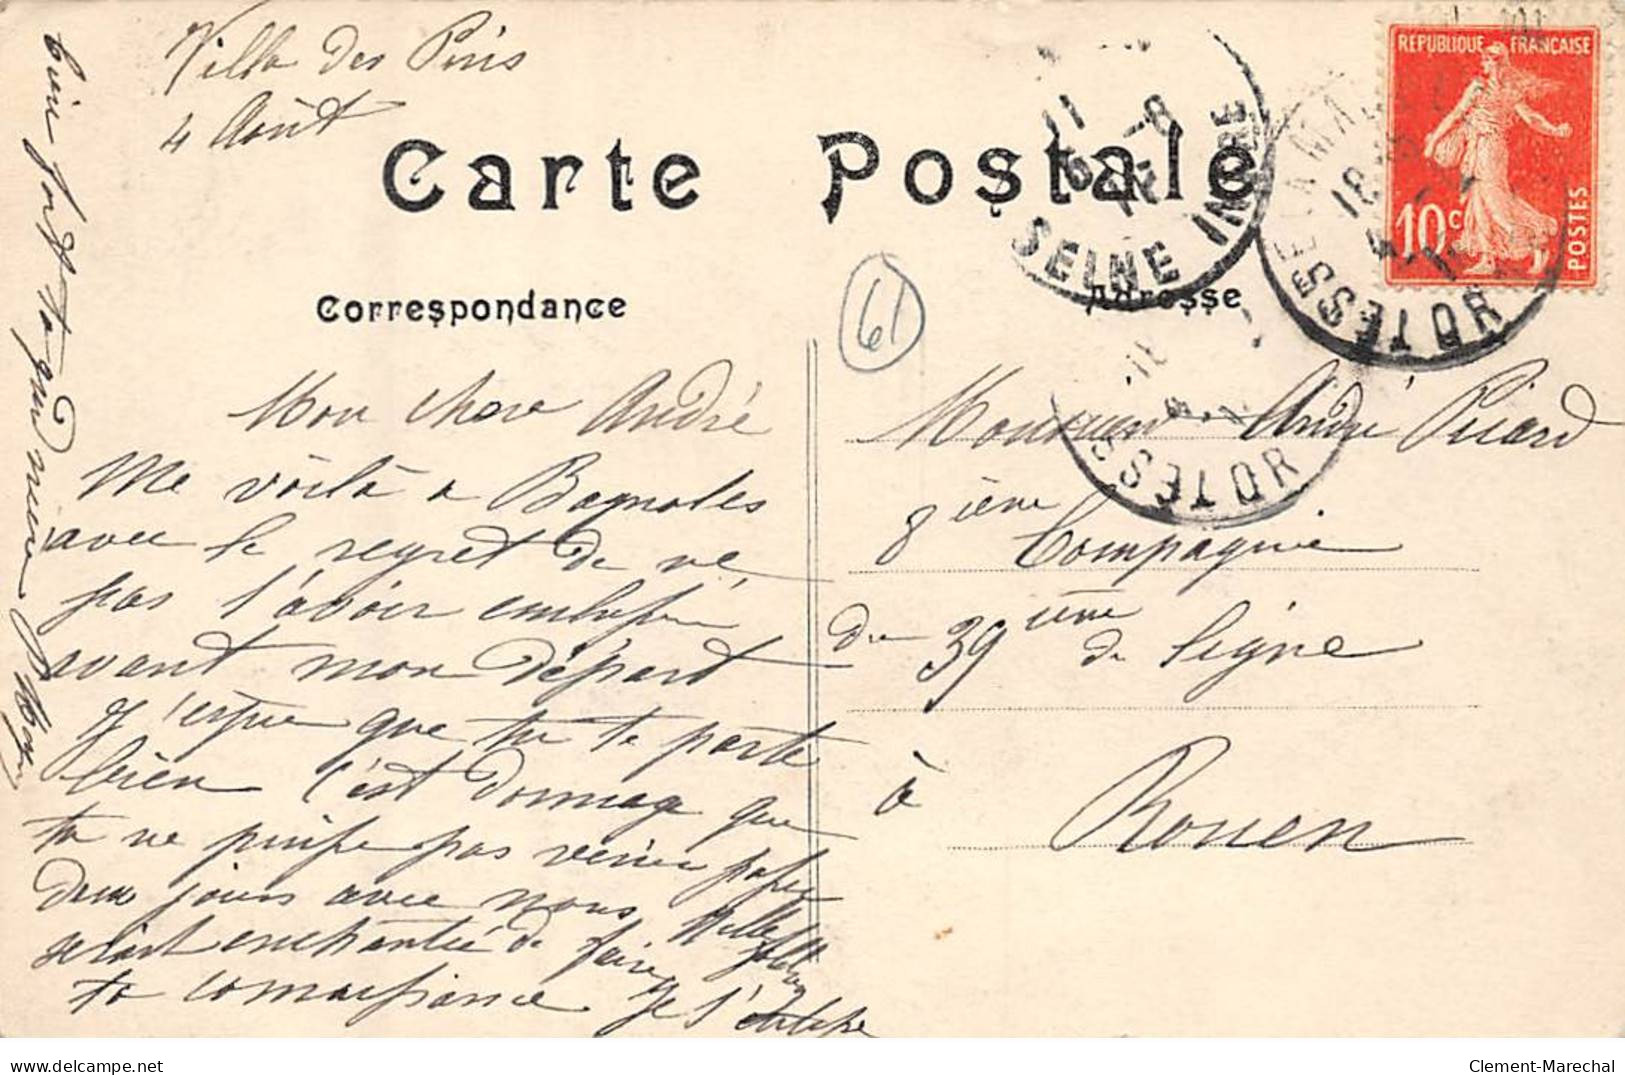 Villa des Pins
4 Août
Carte Postale
REPUBLIQUE FRANÇAISE
10c
POSTES
11
SEINE INFRE
TESSE LA MADEL
18
ROUTE
61
Correspondance
Adresse
Mon cher André
Me voilà à Bagnoles
avec le regret de ne
pas t'avoir embrassé
avant mon départ
J'espère que tu te porte
bien c'est dommage que
tu ne puisse pas venir passer
deux jours avec nous Melle
serait enchantée de faire
ta connaissance Je t'embrasse
bien fort ta grd mère
Monsieur André Picard
8ième Compagnie
du 39ième de ligne
à
Rouen
Clement-Marechal